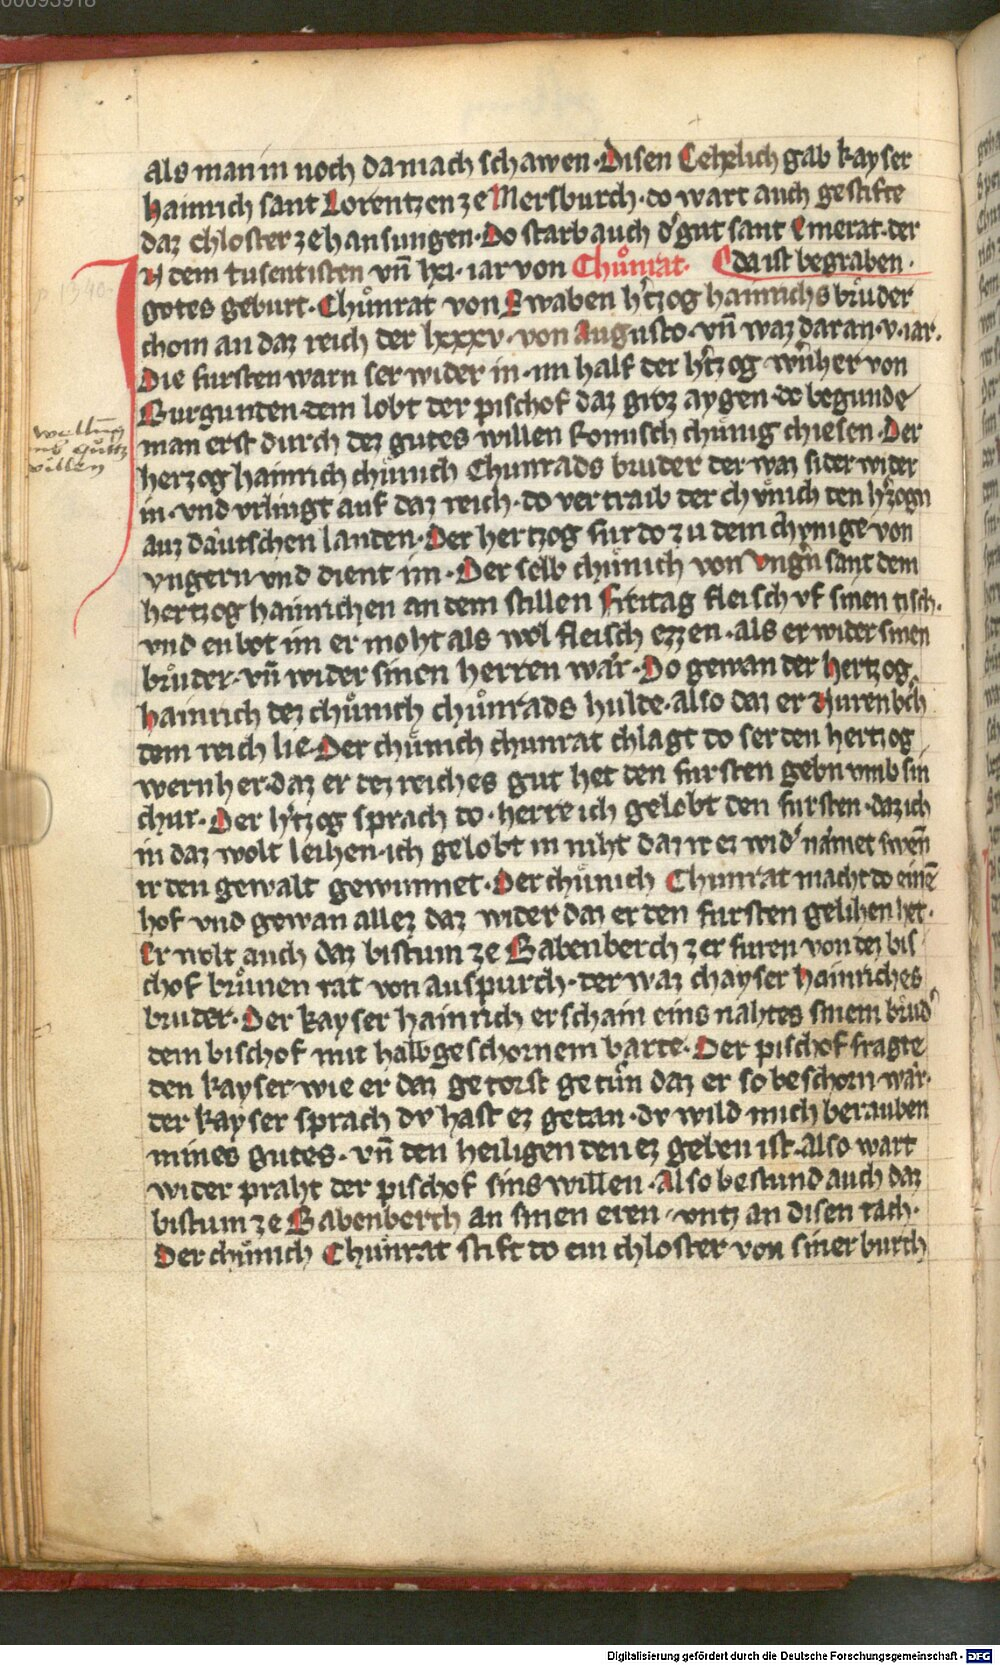 00093918
als man in noch darnach schawen · Disen Cehelich gab kayser
hainrich sant Lorentzen ze Mersburch · do wart auch gestifte
daz chloster ze hansungen · Do starb auch d' gut sant Emerat · der
IN dem tusentisten vn̄ xxi · iar von Chůnrat · da ist begraben ·
gotes geburt · Chůnrat von Swaben h'tzog hainrichs brůder
chom an daz reich der lxxxv · von Augusto · vn̄ waz daran · v · iar ·
Die fursten warn ser wider in · im half der h'tzog w'nher von
Burgunten · dem lobt der pischof daz groz aygen · do begunde
man erst durch dez gutes willen Romisch chůnig chiesen · Der
wellūg
vmb guttz
willen
herzog hainrich chůnich Chunrads bruder der waz sider wider
in · vnd vrlivgt auf daz reich · do vertraib der chůnich den h'zogn
auz dautschen landen · Der hertzog fur do zu dem chynige von
vngern vnd dient im · Der selb chůnich von vng'n sant dem
hertzog hainrichen an dem stillen Freitag fleisch vf sinen tisch ·
vnd enbot im er moht als wol fleisch ezzen · als er wider sinen
brůder · vn̄ wider sinen herren wär · Do gewan der hertzog
hainrich dez chůnich chůnrads hulde · also daz er Nurenb'ch
dem reich lie · Der chůnich chunrat chlagt do ser den hertzog
wernher · daz er dez reiches gut het den fursten gebn vmb sin
chur · Der h'tzog sprach do · herre ich gelobt den fursten · daz ich
in daz wolt leihen · ich gelobt in niht daz ir ez wid' nämet swen̄
ir den gewalt gewunnet · Der chůnich Chunrat macht do einē
hof vnd gewan allez daz wider daz er den fursten gelihen het ·
Er wolt auch daz bistum ze Babenberch zerfuren von dez bis
chof brůnen rat von auspurch · der waz chayser hainriches
bruder · Der kayser hainrich erschain eins nahtes sinem brůd'
dem bischof mit halbgeschornem barte · Der pischof fragte
den kayser wie er daz getorst getůn daz er so beschorn wär ·
der kayser sprach dv hast ez getan · dv wild mich berauben
mines gutes · vn̄ den heiligen den ez geben ist · also wart
wider praht der pischof sins willen · Also bestund auch daz
bistum ze Babenberch an sinen eren · vntz an disen tach ·
Der chůnich Chunrat stift do ein chloster von siner burch
Digitalisierung gefördert durch die Deutsche Forschungsgemeinschaft - DFG